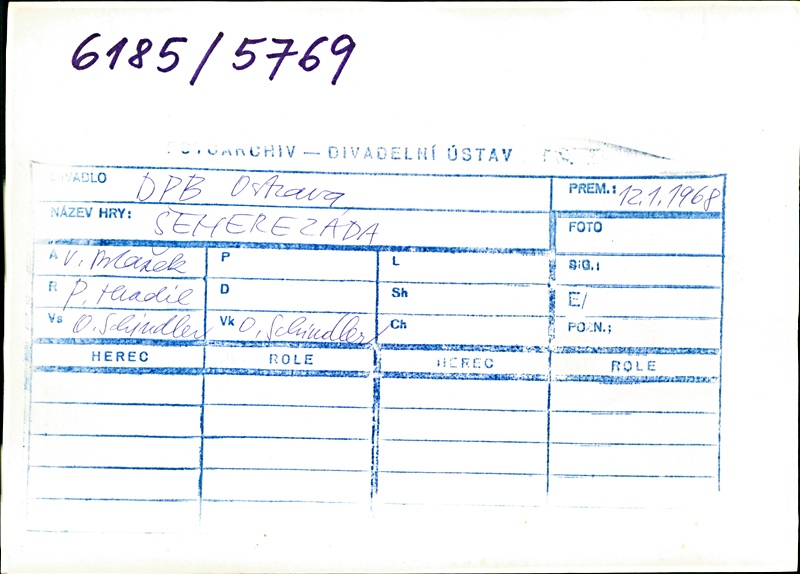 6185/5769
FOTOARCHIV — DIVADELNÍ ÚSTAV
DIVADLO DPB Ostrava PREM.: 12.1.1968
NÁZEV HRY: ŠEHEREZÁDA FOTO
A V. Blažek P L SIG.:
R P. Hradil D Sh E/
Vs O. Schindler Vk O. Schindler Ch POZN.:
HEREC ROLE HEREC ROLE